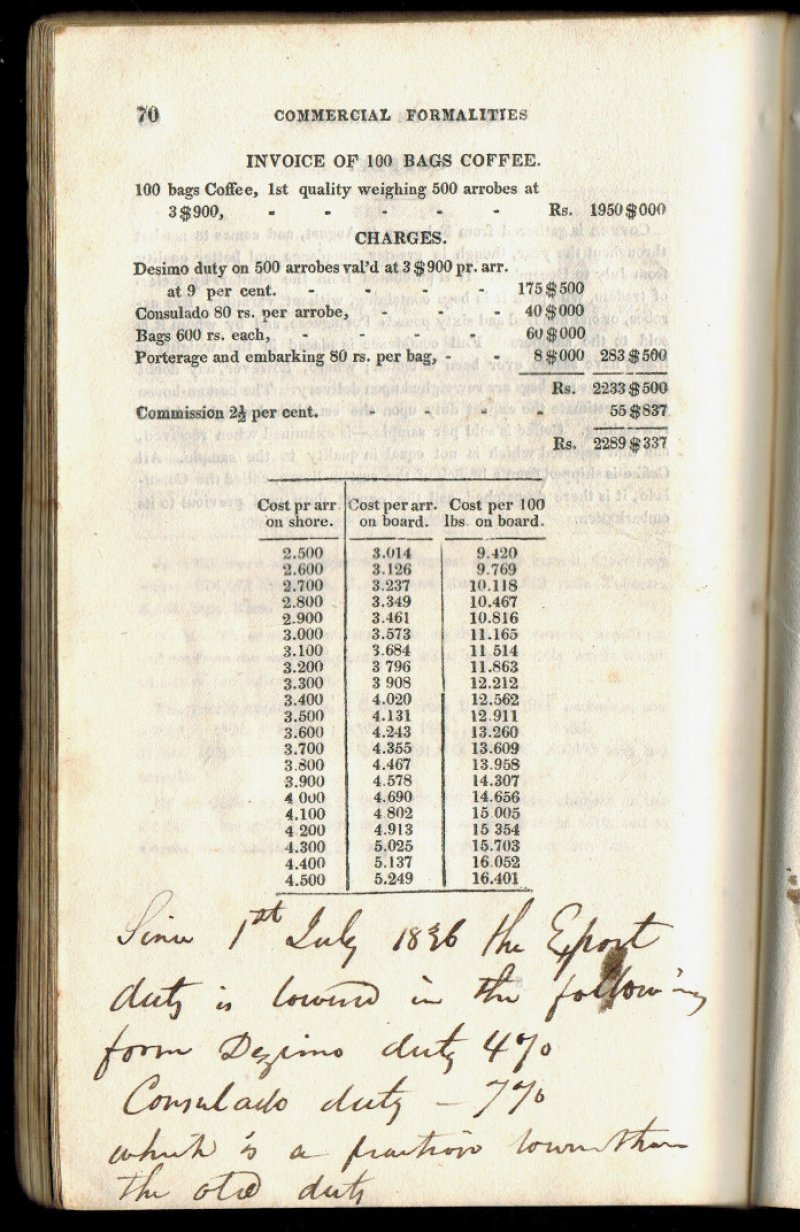 70 COMMERCIAL FORMALITIES
INVOICE OF 100 BAGS COFFEE.
100 bags Coffee, 1st quality weighing 500 arrobes at
3$900, - - - - - Rs. 1950$000
CHARGES.
Desimo duty on 500 arrobes val'd at 3$900 pr. arr.
at 9 per cent. - - - - 175$500
Consulado 80 rs. per arrobe, - - - 40$000
Bags 600 rs. each, - - - - 60$000
Porterage and embarking 80 rs. per bag, - - 8$000 283$500
Rs. 2233$500
Commission 2½ per cent. - - - - 55$837
Rs. 2289$337
Cost pr arr. Cost per arr. Cost per 100
on shore. on board. lbs. on board.
2.500 3.014 9.420
2.600 3.126 9.769
2.700 3.237 10.118
2.800 3.349 10.467
2.900 3.461 10.816
3.000 3.573 11.165
3.100 3.684 11 514
3.200 3 796 11.863
3.300 3 908 12.212
3.400 4.020 12.562
3.500 4.131 12.911
3.600 4.243 13.260
3.700 4.355 13.609
3.800 4.467 13.958
3.900 4.578 14.307
4 000 4.690 14.656
4.100 4 802 15 005
4 200 4.913 15 354
4.300 5.025 15.703
4.400 5.137 16.052
4.500 5.249 16.401
Since 1st July 1836 the Export
duty is lowered in the following
form Dezimo duty 4%
Consulado duty - 7%
which is a fraction lower than
the old duty